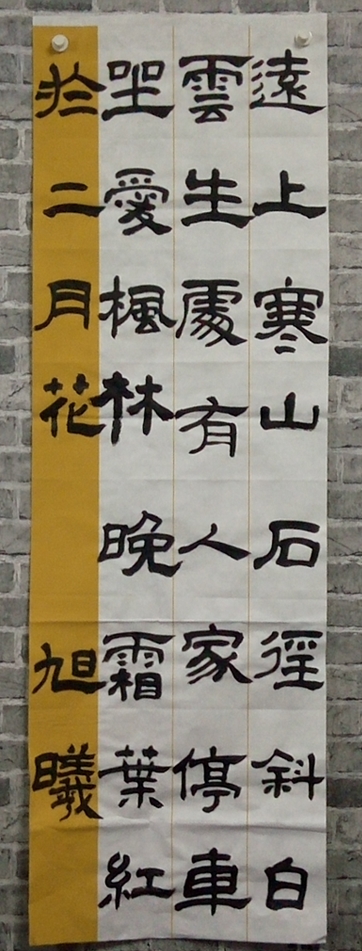 遠上寒山石徑斜白
雲生處有人家停車
坐愛楓林晚霜葉紅
於二月花 旭曦